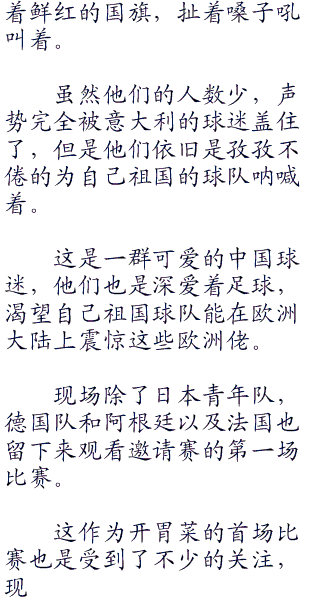 着鲜红的国旗，扯着嗓子吼
叫着。
虽然他们的人数少，声
势完全被意大利的球迷盖住
了，但是他们依旧是孜孜不
倦的为自己祖国的球队呐喊
着。
这是一群可爱的中国球
迷，他们也是深爱着足球，
渴望自己祖国球队能在欧洲
大陆上震惊这些欧洲佬。
现场除了日本青年队，
德国队和阿根廷以及法国也
留下来观看邀请赛的第一场
比赛。
这作为开胃菜的首场比
赛也是受到了不少的关注，
现